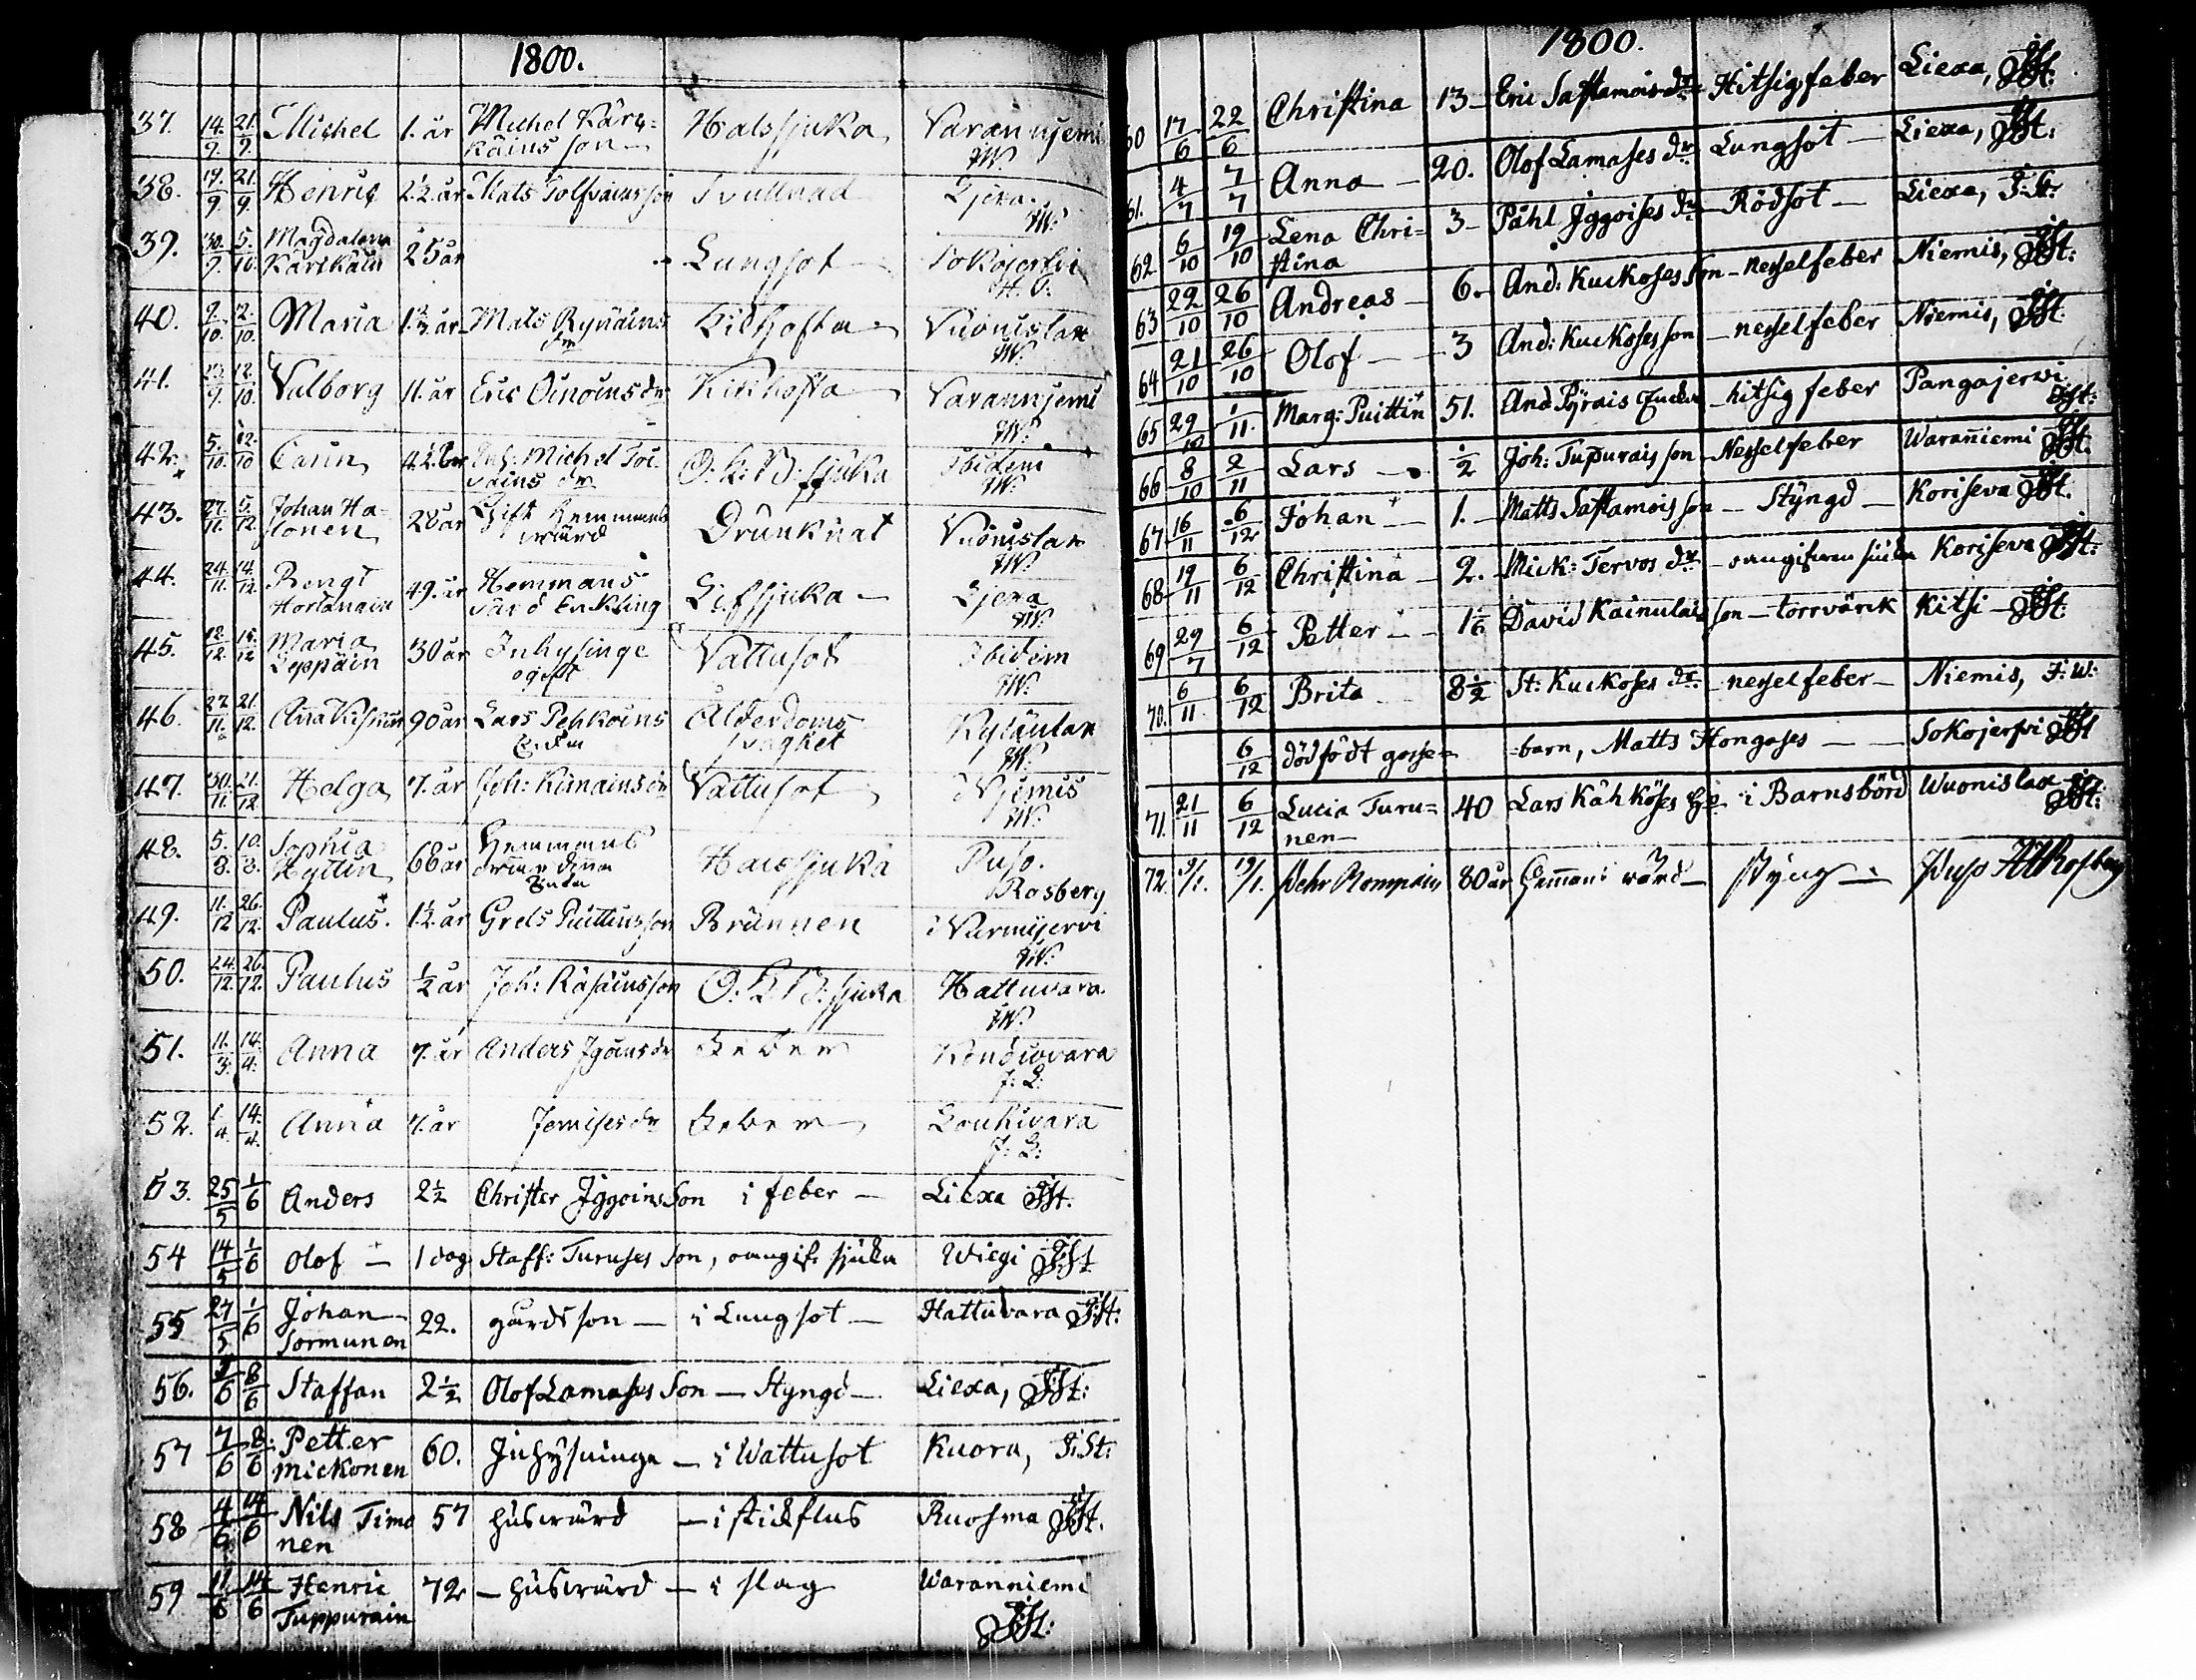 1800.
37. 14/9. 21/9. Michel 1. år Michel Kärc= Halssjuka Varannjemi
käins son J.W.
38. 19/9. 21/9. Henric 2½ år Mats Tolfvainsson Svullnad Ljexa
J.W.
39. 30/9. 5/10. Magdalena 25 år Lungsot Sokojerfvi
Kärckäin
40. 9/10. 12/10. Maria 1½ år Mats Ryynäins Kikhosta Vuonislax
dr J.W.
41. 12/10. Valborg 11. år Eric Oinoinsdr Kikhosta Varannjemi
J.W.
42. 5/10. 12/10 Carin Inh: Michel Toi- O.K.B. sjuka Ibidem
vains dr J.W.
43. 27/11. 5/12. Johan Ha- 28 år Gift Hemmans Drunknat Vuonislax
lonen värd J.W.
44. 24/11. 14/12. Bengt 49. år Hemmans Lifsjuka Ljexa
Hortanain värd Enkling J.W.
45. 12/12. 15/12 Maria 30 år Inhysinge Vattusot Ibidem
Leppäin ogift J.W.
46. 27/11. 21/12. Anna Kisonen 90 år Lars Pehkoins Ålderdoms Kylänlax
Enka svaghet J.W.
47. 30/11 21/12 Helga 7. år Joh: Kinainsdr Vattusot Njemis
J.W.
48. 5./8. 10./8. Sophia 68 år Hemmans Halssjuka Puso.
Hyttin Enka Rosberg
49. 11/12 26/12. Paulus. 1½ år Grels Puittinsson Brännen Nurmijervi
J.W.
50. 24/12 26/12. Paulus ½ år Joh: Räsäinsson O.K.B. sjuka Hattuvara
J.W.
51. 11./3. 14./4. Anna 7. år Anders Igoinsdr Feber Kondiovara
J: L:
52. 1./4. 14./4. Anna 7. år Jomisesdr Feber Louhivara
J: L:
53. 25/5 1/6 Anders 2½ Christer Iggoins Son i feber — Liexa J:St.
54 14/5 1/6 Olof — 1 dag Staff: Turuses son, oangif. sjuka Wiegi J:St
55 27/5 1/6 Johan 22. gårdsson — i Lungsot — Hattuvara J:St:
Sormunen
56. 8/6 Staffan 2½ Olof Lamases Son — Styngd — Liexa, J:St:
57 7/6 8/6 Petter 60. Inhysninge — i Wattusot Kuora, J:St:
mickonen
58 4/6 14/6 Nils Timo 57 husvärd — i stickflus Ruosma J:St.
nen
59 11/6 14/6 Henric 72 — husvärd — i slag Waranniemi
Tuppurain J:St:
1800.
60 17/6 22/6 Christina 13 — Eric Sastamoises dr Hitsigfeber Liexa, J:St:
61. 4/7 7/7 Anna — 20. Olof Lamases dr Lungsot — Liexa, J:St:
62 6/10 19/10 Lena Chri= 3 — Påhl Iggoises dr — Rödsot — Liexa, J:St:
stina
63 22/10 26/10 Andreas — 6. And: Kuckoses son — nesselfeber Niemis, J:St:
64 21/10 26/10 Olof — 3 And: Kuckoses son — nesselfeber Niemis, J:St.
65 29/10 1/11. Marg: Puittin 51. And Pyrais Encka — hitsig feber Pangajerwi
J:St:
66 8/10 2/11 Lars — ½ Joh: Tupurais son — Nesselfeber Waranniemi J:St.
67 16/11 6/12 Johan — 1. — Matts Sastamois son — Styngd — Koriseva J:St.
68 19/11 6/12 Christina — 2. — Mick: Tervos dr — oangifven siuka Koriseva J:St:
69 29/7 6/12 Petter — 1 1/6 David Kainulais son — torrvärk Kitsi — J:St:
70. 6/11. 6/12 Brita 8½ St: Kuckoses dr. — nesselfeber — Niemis, J:W:
6/12 dödfödt gosse= =barn, Matts Hongases — Sokojerfvi J:St
71. 21/11 6/12 Lucia Turu= 40 Lars Kähköses i Barnsbörd Wuonislax
nen — J:St:
72. 9/1. 19/1. Pehr Rompain 80 år Hemans wärd — styng — Puso Rosberg